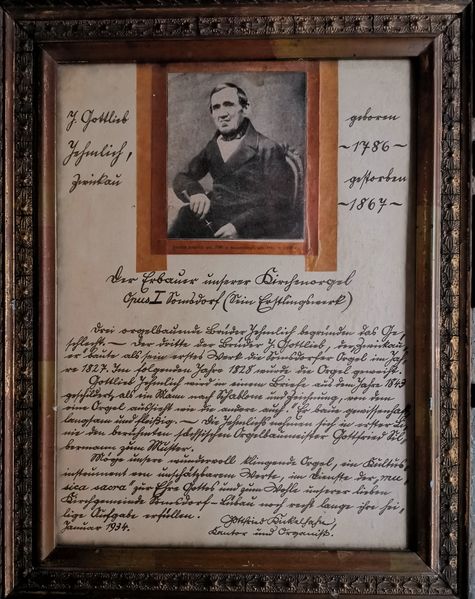 J. Gottlieb
Jehmlich,
Zwickau
geboren
~1786~
gestorben
~1867~
Der Erbauer unserer Kirchenorgel
Opus I Somsdorf (Sein Erstlingswerk)
Drei orgelbauende Brüder Jehmlich begründen das Ge-
schlecht. — Der dritte der Brüder J. Gottlieb, der Zwickau-
er baute als sein erstes Werk die Somsdorfer Orgel im Jah-
re 1827. Im folgenden Jahre 1828 wurde die Orgel geweiht.
Gottlieb Jehmlich wird in einem Briefe aus dem Jahre 1843
geschildert, als ein Mann nach Schablone und Zeichnung, von dem
eine Orgel aussieht wie die andere auch. Er baue gewissenhaft,
langsam und fleißig. — Die Jehmlichs nahmen sich in erster Li-
nie den berühmten sächsischen Orgelbaumeister Gottfried Sil-
bermann zum Muster.
Möge unsere wundervoll klingende Orgel, ein Kultus-
instrument von unschätzbarem Werte, im Dienste der mu-
sica sacra zur Ehre Gottes und zum Wohle unserer lieben
Kirchgemeinde Somsdorf-Lübau noch recht lange ihre hei-
lige Aufgabe erfüllen.
Januar 1934.
Gottfried
Kantor und Organist.